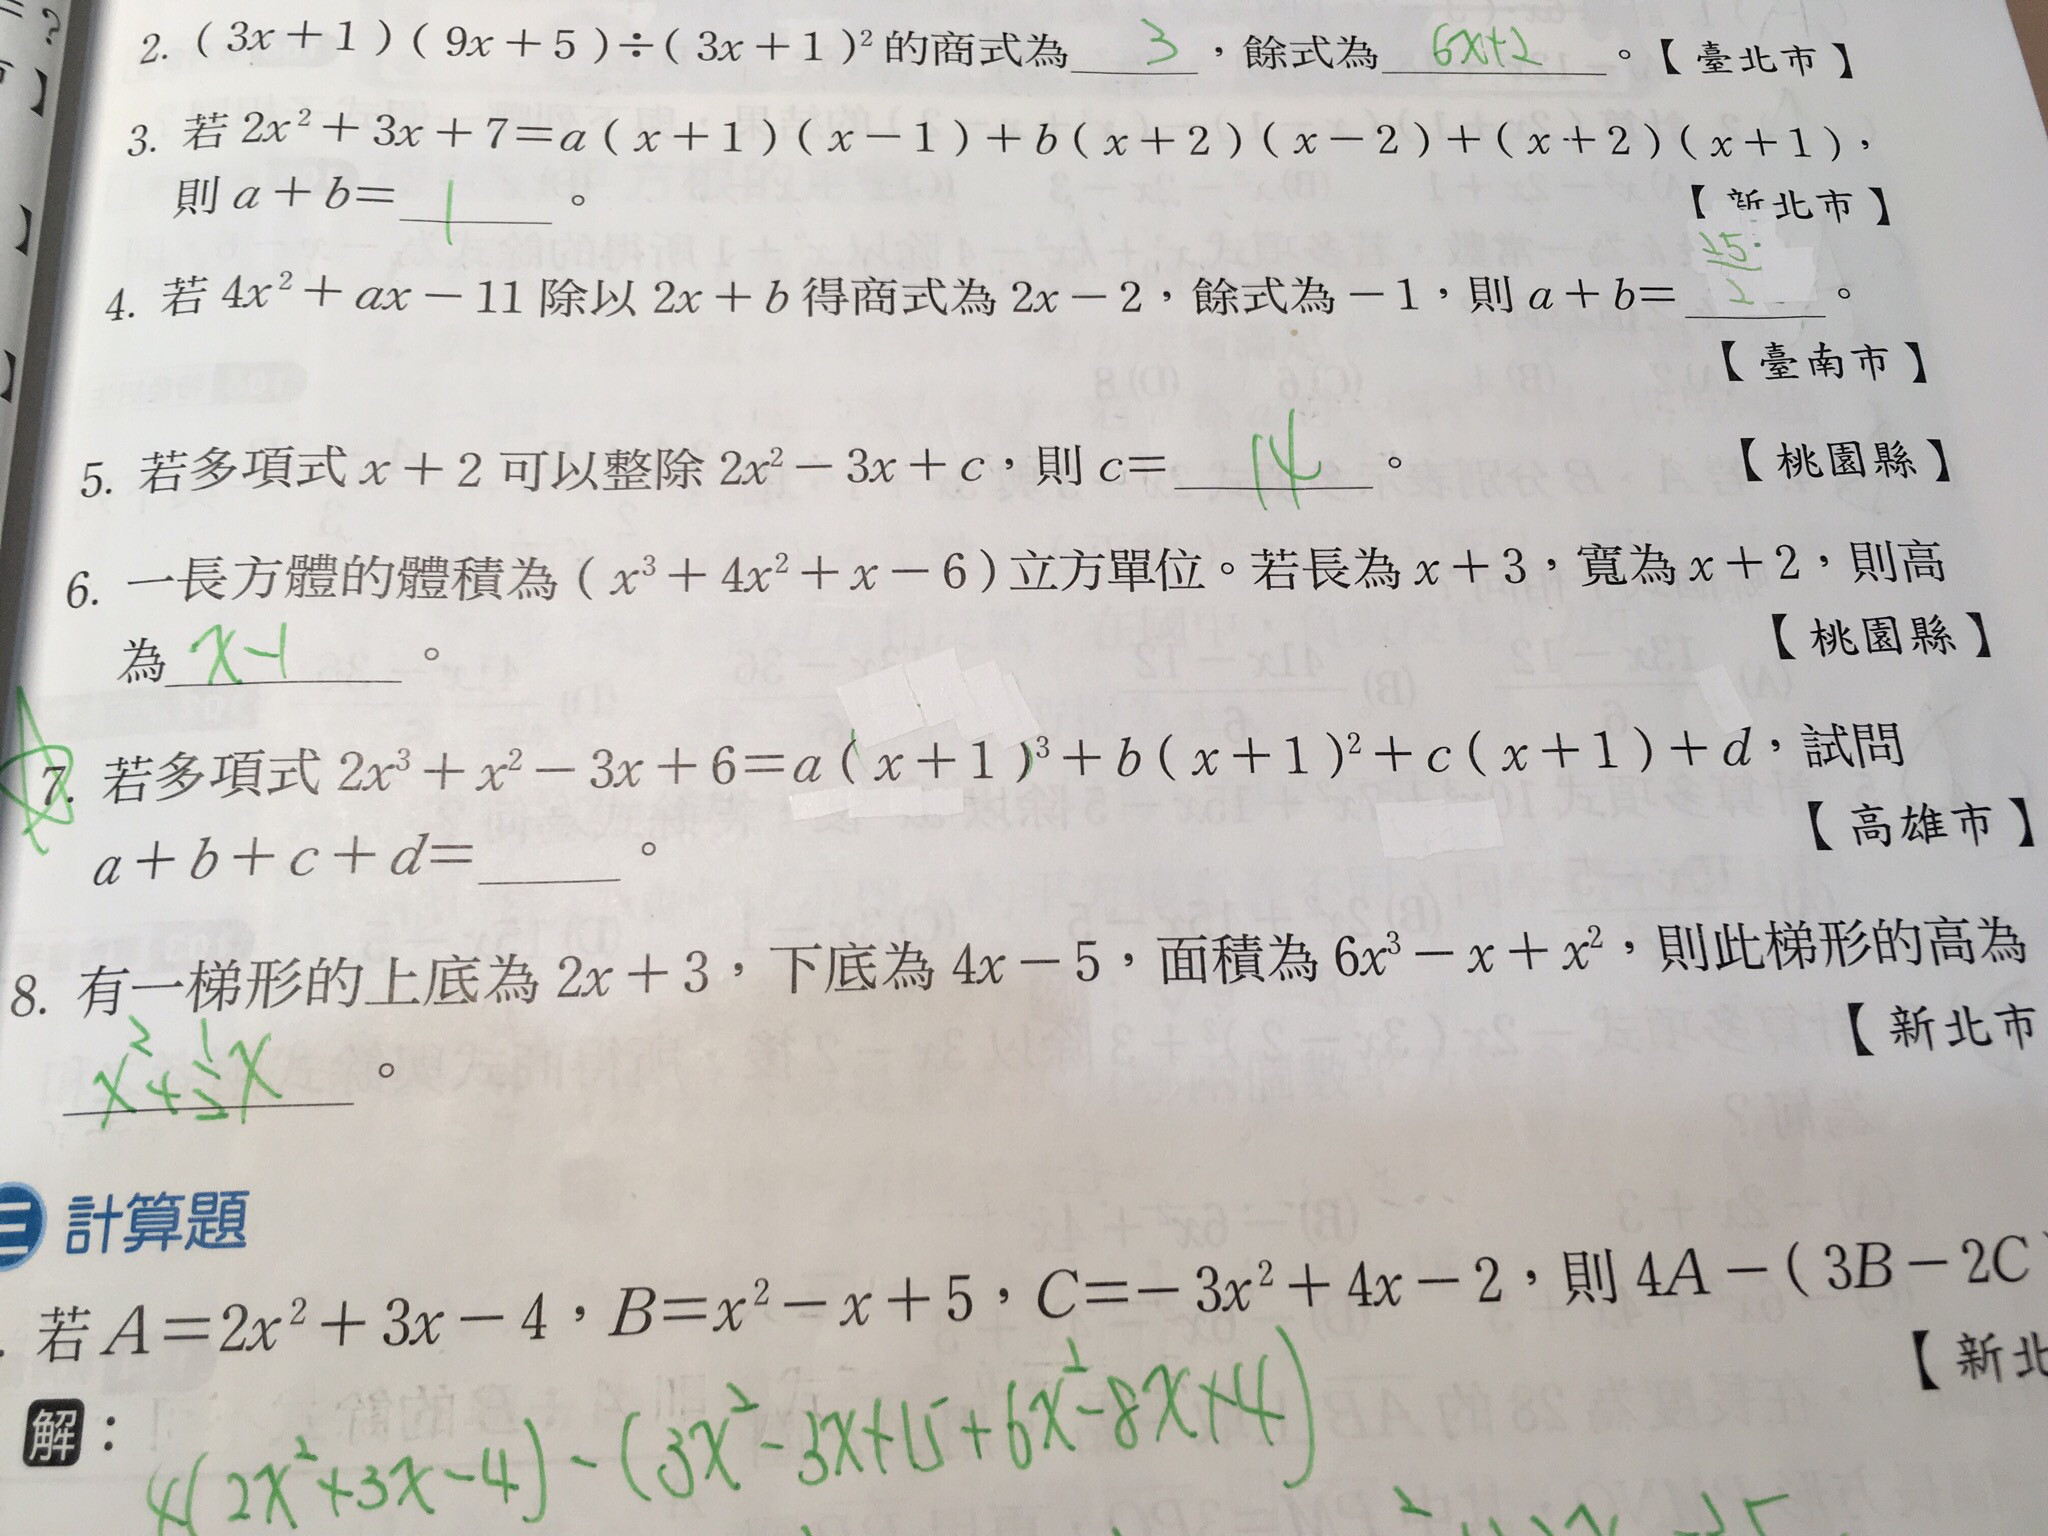 2. (3x+1)(9x+5)÷(3x+1)²的商式為 3 ,餘式為 6x+2 。【臺北市】
3. 若2x²+3x+7=a(x+1)(x−1)+b(x+2)(x−2)+(x+2)(x+1),
則a+b= 1 。
【新北市】
4. 若4x²+ax−11除以2x+b得商式為2x−2,餘式為−1,則a+b= 。
【臺南市】
5. 若多項式x+2可以整除2x²−3x+c,則c= 14 。 【桃園縣】
6. 一長方體的體積為(x³+4x²+x−6)立方單位。若長為x+3,寬為x+2,則高
為 x-1 。
【桃園縣】
7. 若多項式2x³+x²−3x+6=a(x+1)³+b(x+1)²+c(x+1)+d,試問
a+b+c+d= 。
【高雄市】
8. 有一梯形的上底為2x+3,下底為4x−5,面積為6x³−x+x²,則此梯形的高為
x²+½x 。
【新北市
三 計算題
. 若A=2x²+3x−4,B=x²−x+5,C=−3x²+4x−2,則4A−(3B−2C)
【新北
解:
4(2x²+3x-4)-(3x²-3x+15+6x²-8x+4)